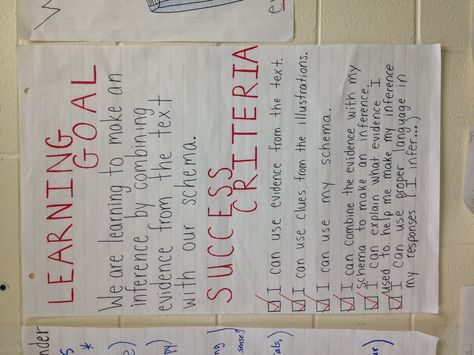 LEARNING
GOAL
We are learning to make an
inference by combining
evidence from the text
with our schema.
SUCCESS
CRITERIA
I can use evidence from the text.
I can use clues from the illustrations.
I can use my schema.
I can combine the evidence with my
schema to make an inference.
I can explain what evidence I
used to help me make my inference.
I can use proper language in
my responses (I infer...)